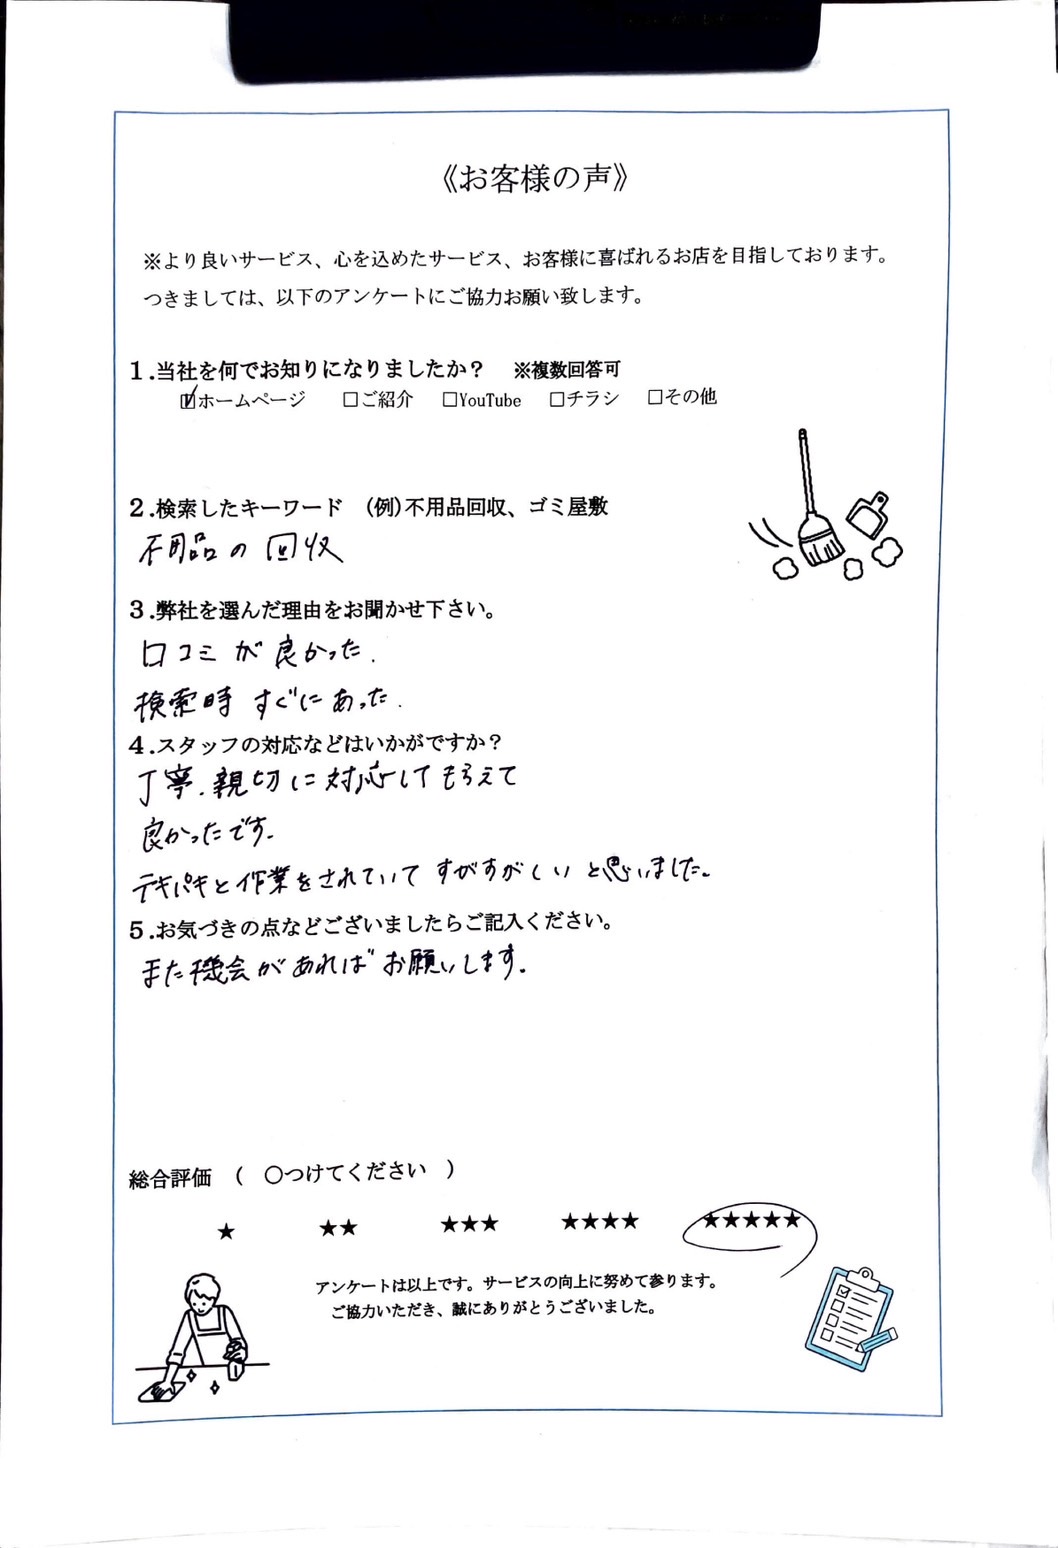 《お客様の声》
※より良いサービス、心を込めたサービス、お客様に喜ばれるお店を目指しております。
つきましては、以下のアンケートにご協力お願い致します。
1.当社を何でお知りになりましたか？　※複数回答可
☑ホームページ　□ご紹介　□YouTube　□チラシ　□その他
2.検索したキーワード　(例)不用品回収、ゴミ屋敷
不用品の回収
3.弊社を選んだ理由をお聞かせ下さい。
口コミが良かった.
検索時すぐにあった.
4.スタッフの対応などはいかがですか？
丁寧.親切に対応してもらえて
良かったです.
テキパキと作業をされていてすがすがしいと思いました。
5.お気づきの点などございましたらご記入ください。
また機会があればお願いします.
総合評価　(　〇つけてください　)
★　★★　★★★　★★★★　★★★★★
アンケートは以上です。サービスの向上に努めて参ります。
ご協力いただき、誠にありがとうございました。